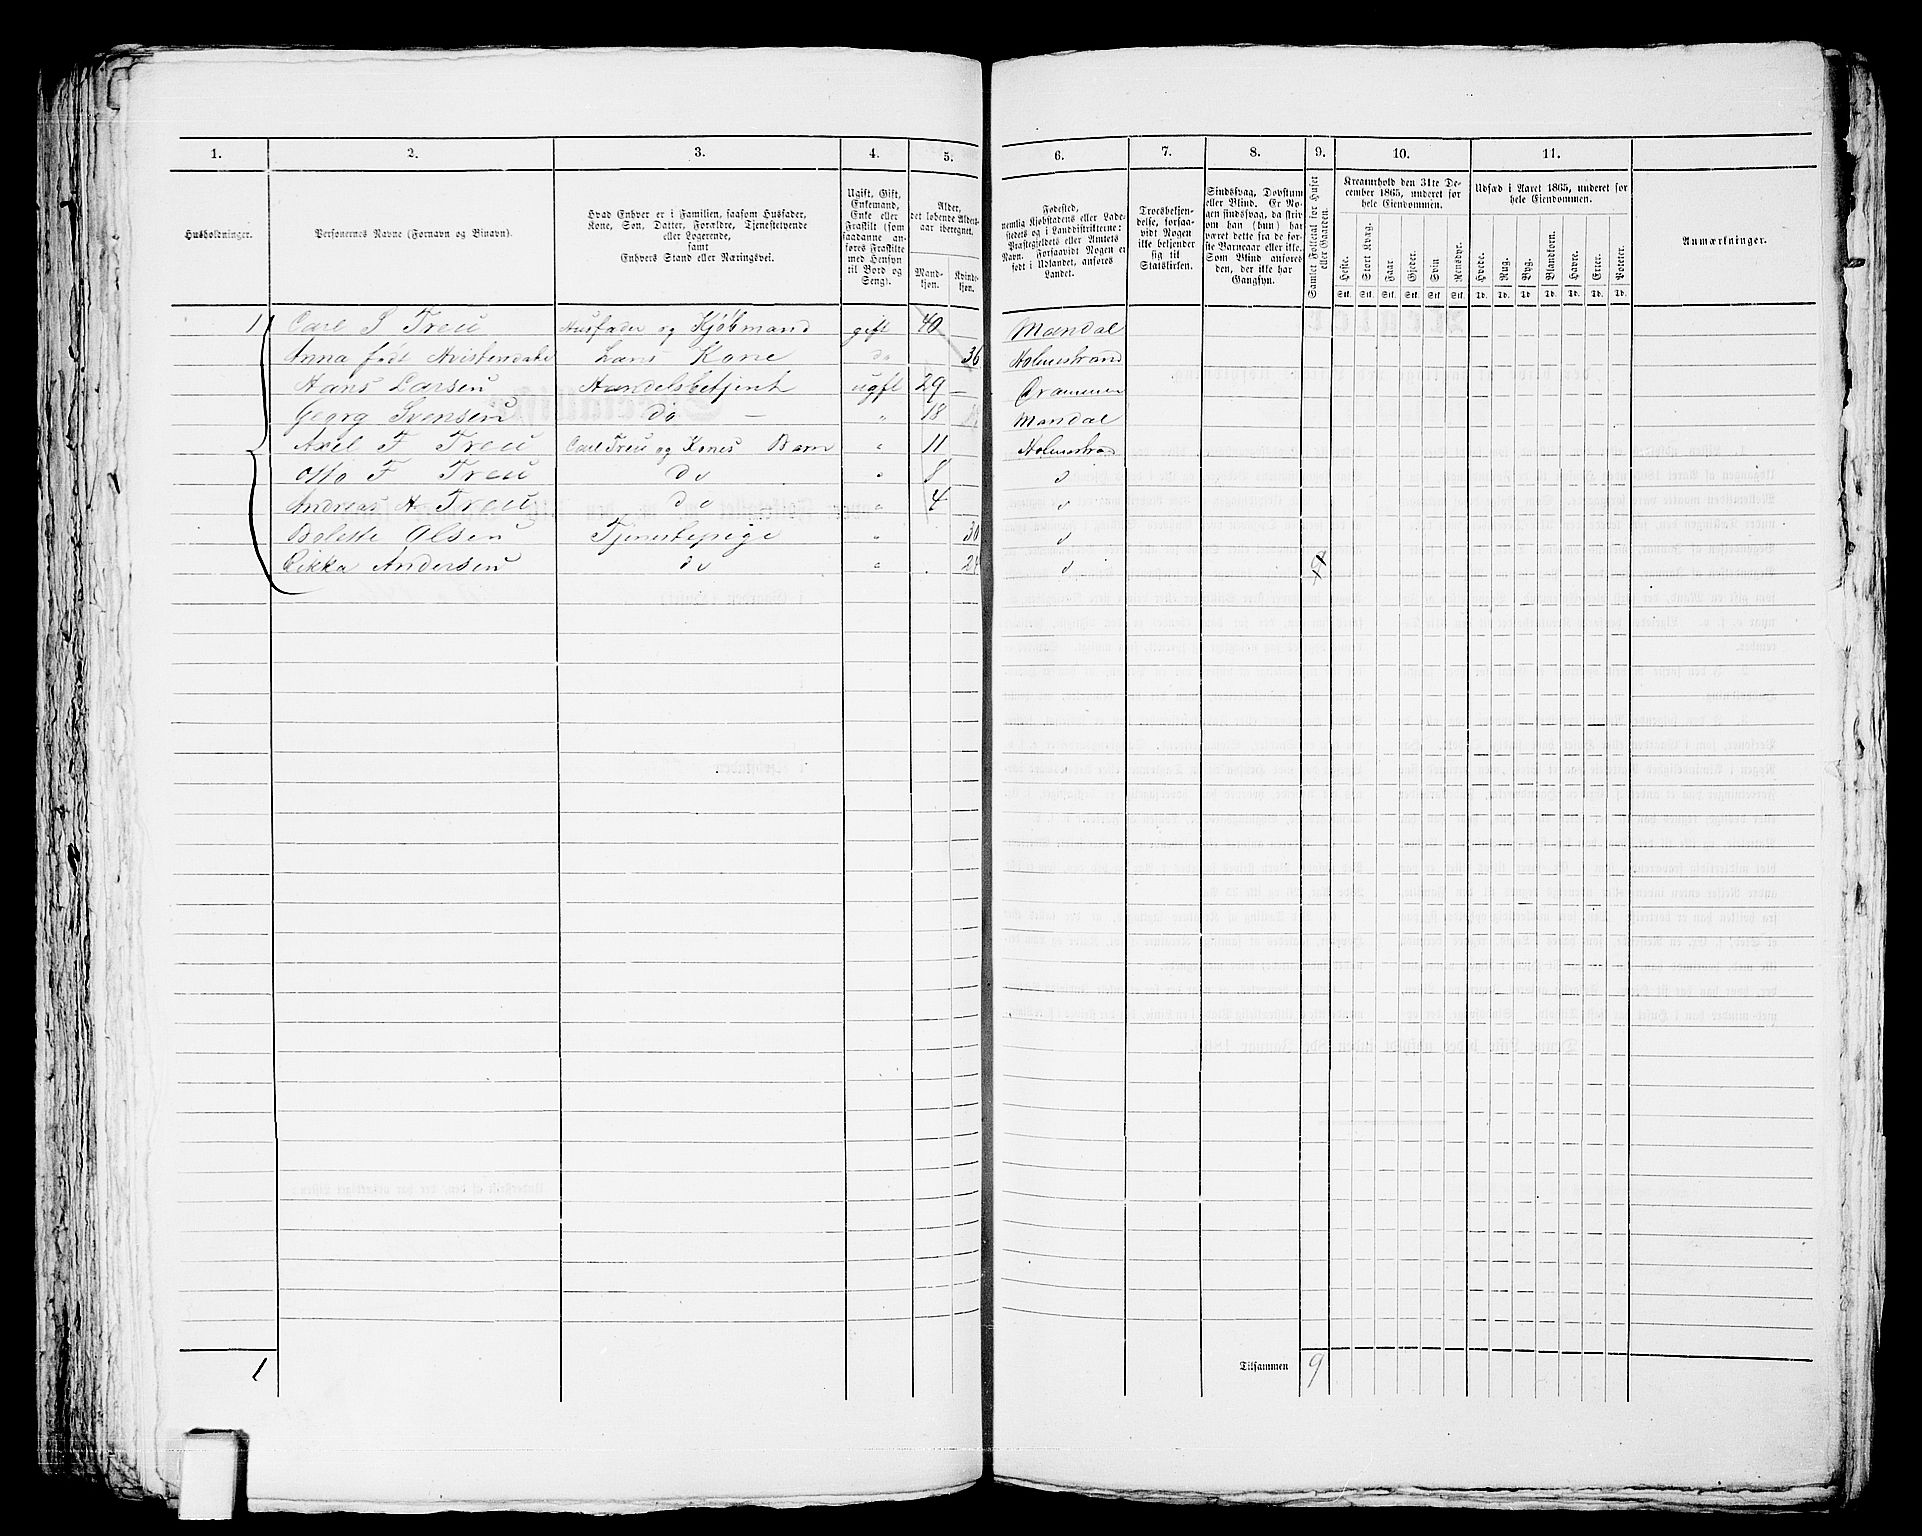 1. 2. 3. 4. 5. 6. 7. 8. 9. 10. 11.
Husholdninger.
Personernes Navne (Fornavn og Binavn).
Hvad Enhver er i Familien, saasom Husfader,
Kone, Søn, Datter, Forældre, Tjenestetyende
eller Logerende,
samt
Enhvers Stand eller Næringsvei.
Ugift, Gift,
Enkemand,
Enke eller
Fraskilt (som
saadanne an-
føres Fraskilte
med Hensyn
til Bord og
Seng).
Alder,
det løbende Alders-
aar iberegnet.
Mand-
kjøn.
Kvinde-
kjøn.
Fødested,
nemlig Kjøbstadens eller Lade-
stedets og i Landdistrikterne:
Præstegjeldets eller Amtets
Navn. Forsaavidt Nogen er
født i Udlandet, anføres
Landet.
Troesbekjen-
delse, forsaa-
vidt Nogen
ikke bekjender
sig til
Statskirken.
Sindssvag, Døvstum
eller Blind. Er No-
gen sindssvag, da skriv
om han (hun) har
været dette fra de før-
ste Barneaar eller ikke.
Som Blind anføres
den, der ikke har
Gangsyn.
Samlet Folketal for Huset
eller Gaarden.
Kreaturhold den 31te De-
cember 1865, underet for
hele Eiendommen.
Heste. Stort Kvæg. Faar Gjeder. Svin Rensdyr.
Stk. Stk. Stk. Stk. Stk. Stk.
Udsæd i Aaret 1865, underet for
hele Eiendommen.
Hvede. Rug. Byg. Blandkorn. Havre. Erter. Poteter.
Td. Td. Td. Td. Td. Td. Td.
Anmærkninger.
1 Carl S Treu Husfader og Kjøbmand gift 40 Mandal
Anna født Hans Kone do 36 Holmestrand
Hans Larsen Handelsbetjent ugift 29 Drammen
Georg Svensen do 18 Mandal
Axel F Treu Carl Treu og Kones Barn " 11 Holmestrand
Otto F Treu do " 8 d
Andreas H Treu do " 4 d
Bolette Olsen Tjenestepige " 30 d
Andersen do " 24 d 9
1 Tilsammen 9